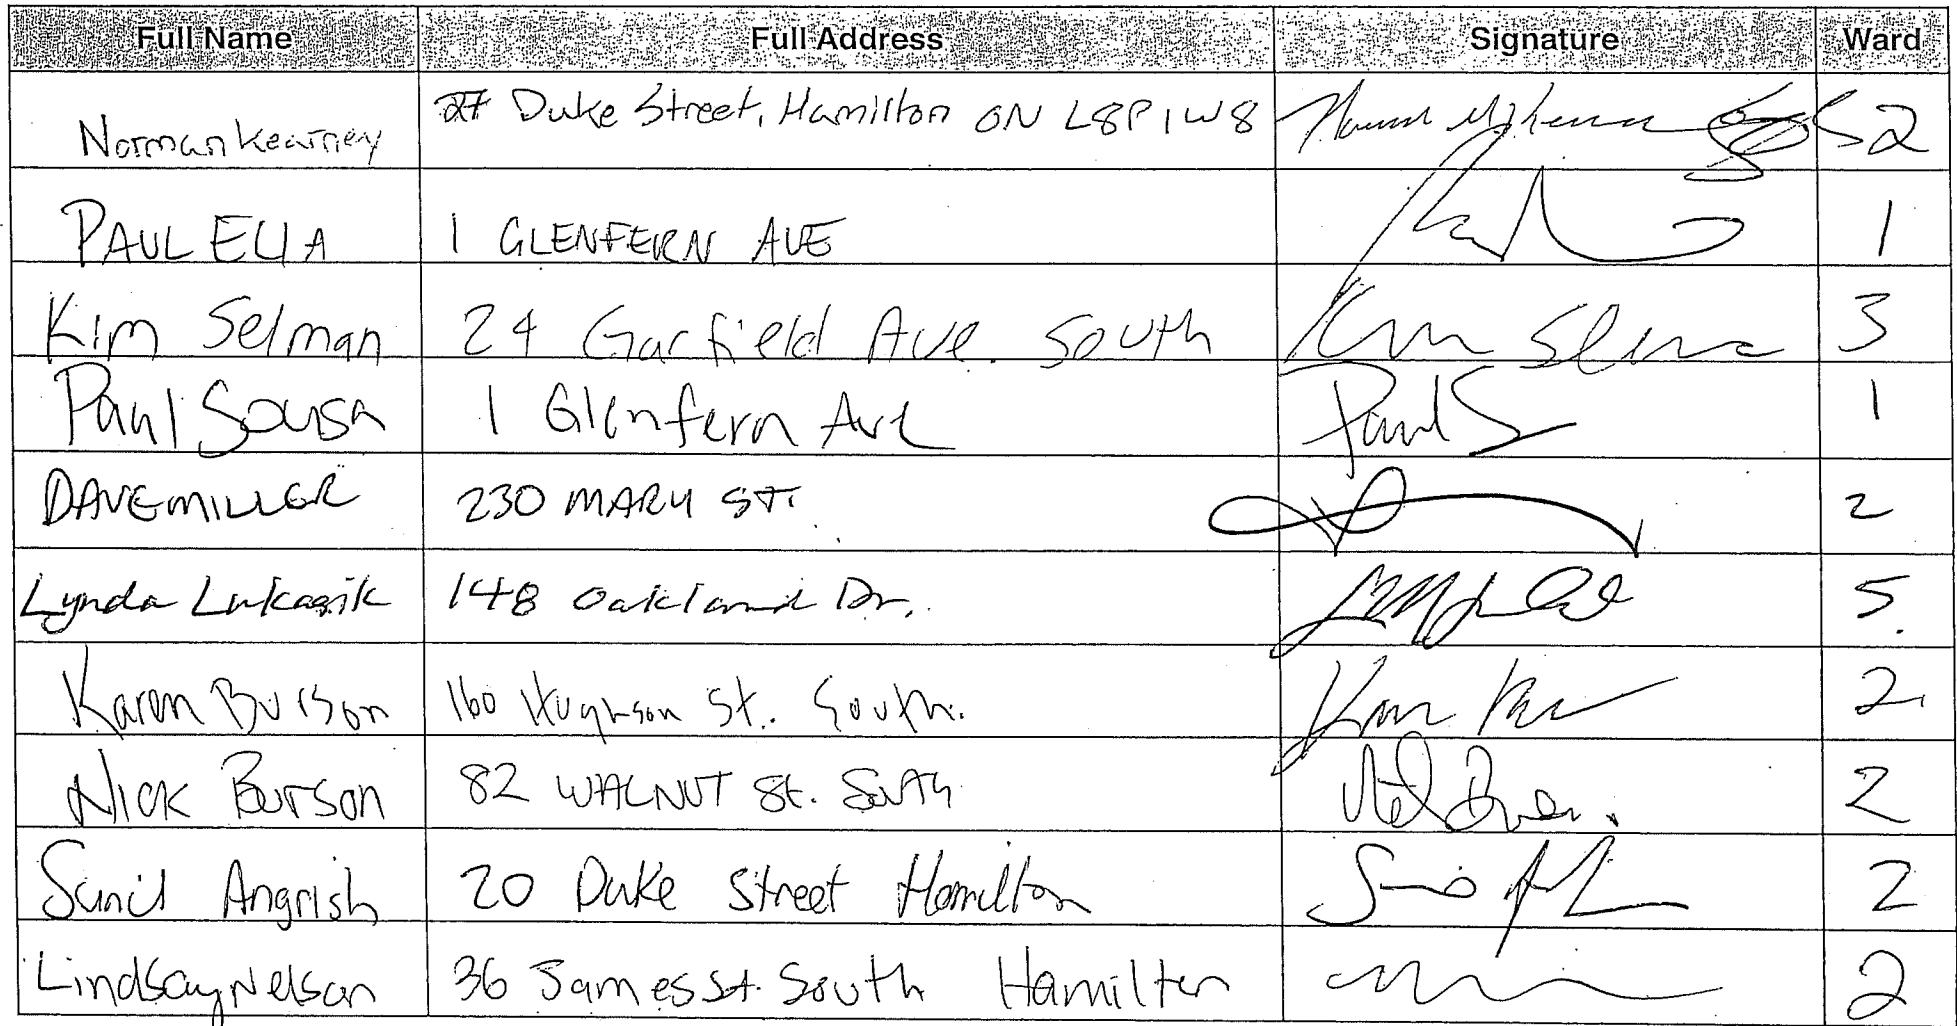 Full Name Full Address Signature Ward
Norman Kearney 27 Duke Street, Hamilton ON L8P 1W8 2
PAUL ELIA 1 GLENFERN AVE 1
Kim Selman 24 Garfield Ave. South Kim 3
Paul Sousa 1 Glenfern Ave Paul S 1
DAVE MILLER 230 MARY ST. 2
Lynda Lukasik 148 Oakland Dr. 5
Karen Burson 160 Hughson St. South. 2
Nick Burson 82 WALNUT St. South 2
Sunil Angrish 20 Duke Street Hamilton 2
Lindsay Nelson 36 James St. South Hamilton 2